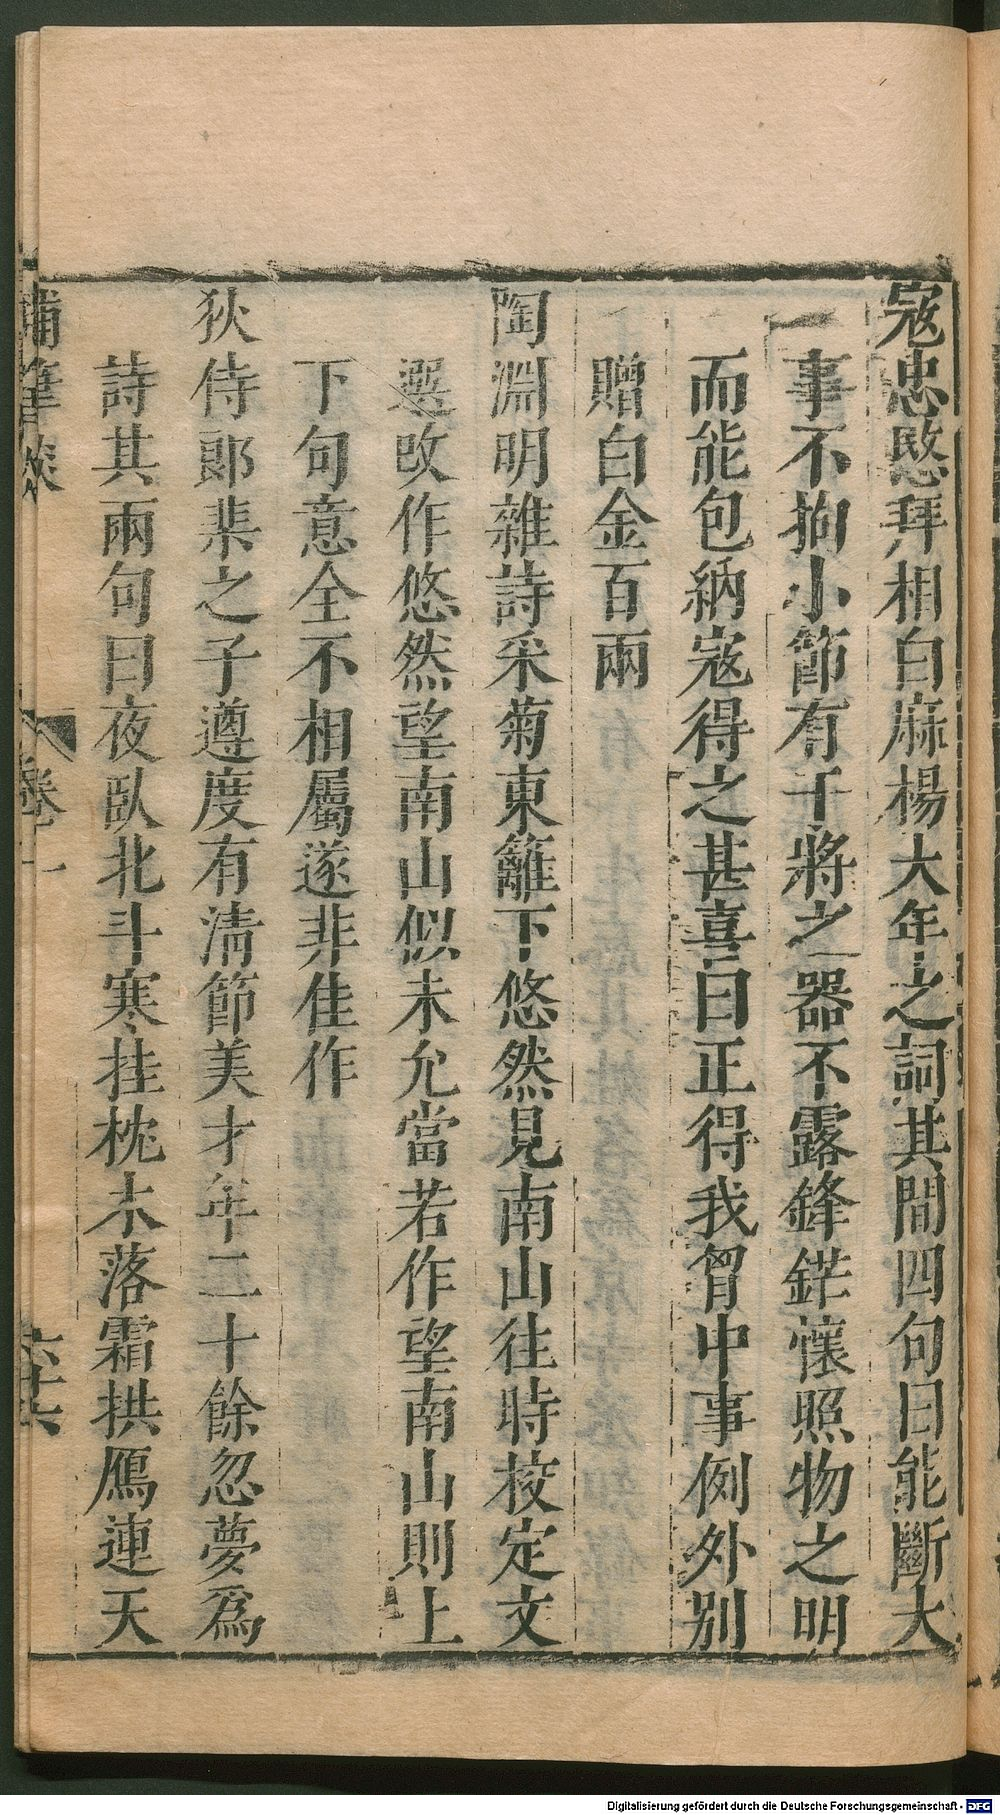 寇忠愍拜相白麻楊大年之詞其間四句曰能斷大
一事不拘小節有干將之器不露鋒鋩懷照物之明
而能包納寇得之甚喜曰正得我胷中事例外别
贈白金百兩
陶淵明雜詩采菊東籬下悠然見南山往時校定文
選改作悠然望南山似未允當若作望南山則上
下句意全不相屬遂非佳作
狄侍郎棐之子遵度有清節美才年二十餘忽夢爲
詩其兩句曰夜臥北斗寒挂枕木落霜拱鴈連天
補筆談
卷一
Digitalisierung gefördert durch die Deutsche Forschungsgemeinschaft - DFG